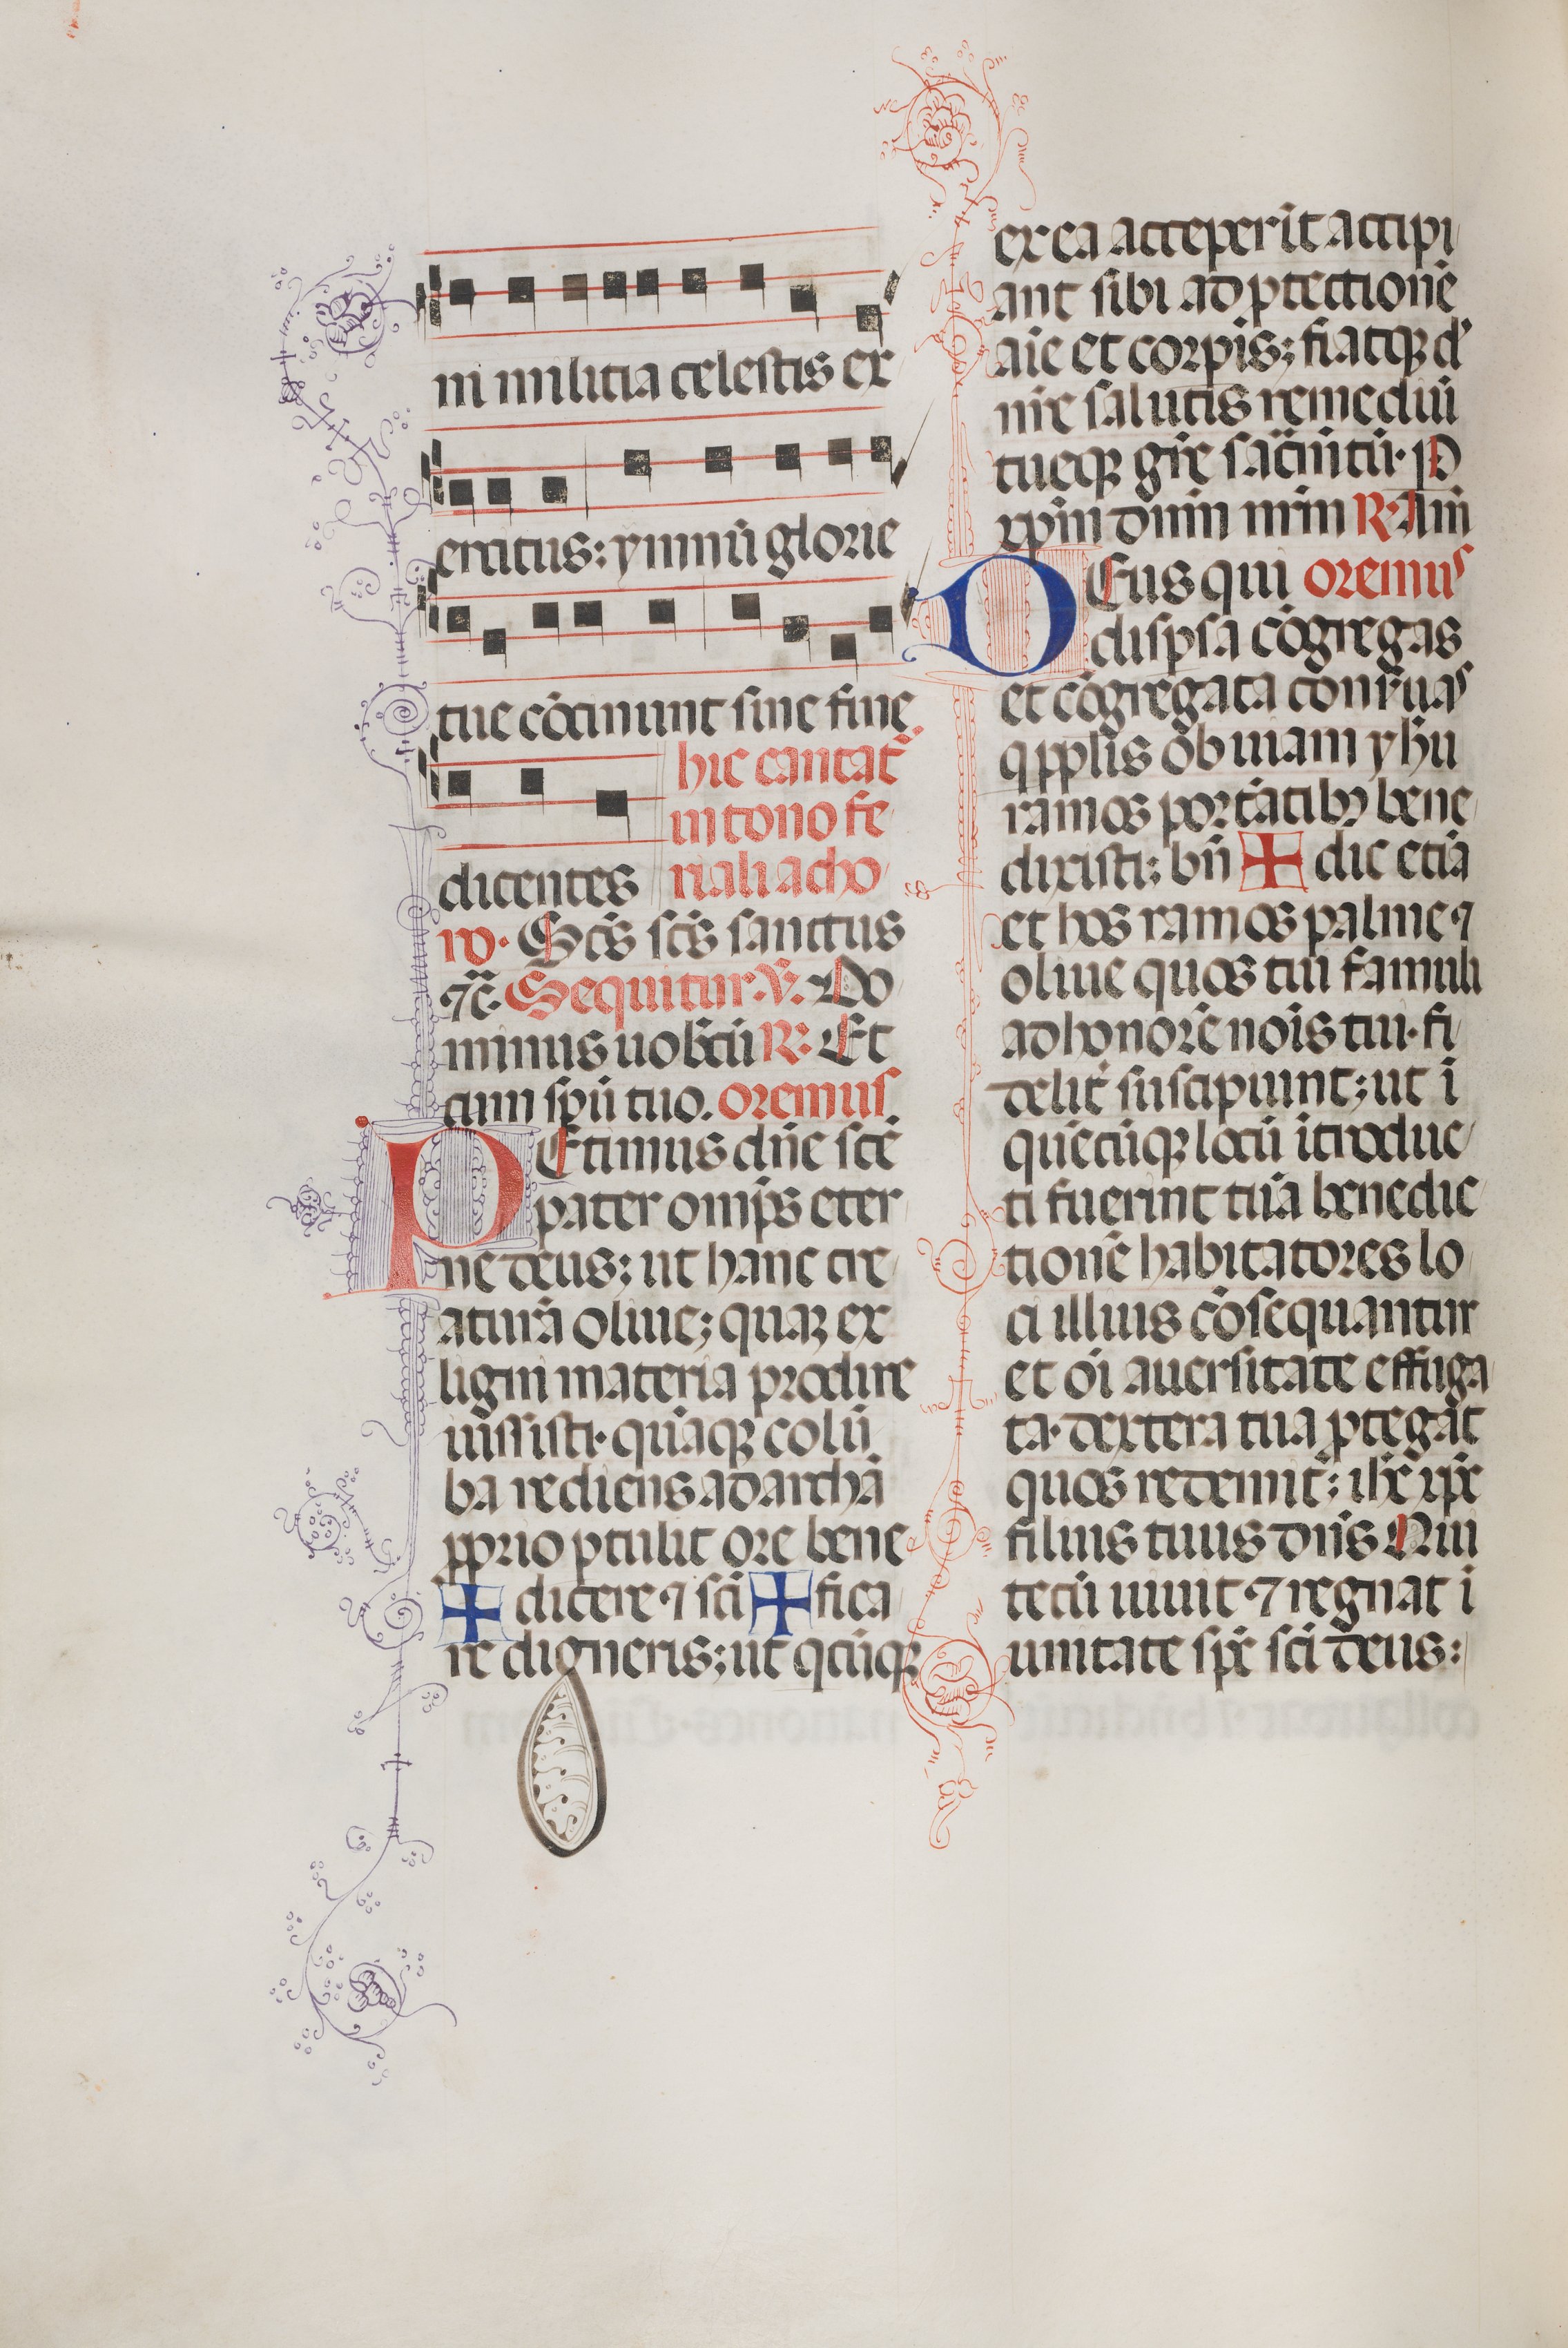 ni militia celestis ex
ercitus: ymnū glorie
tue cōcinunt sine fine
dicentes
hic cantat᷑
in tono fe
riali a cho
ro. Sc̄s sc̄s sanctus
⁊c̄. Sequitur. ℣. Do
minus uobcū ℟. Et
cum sp̄ū tuo. oremus
PEtimus dn̄e sc̄e
pater omīps eter
ne deus; ut hanc cre
aturā oliue; quaꝫ ex
ligni materia prodire
iussisti. quāqꝫ colū
ba rediens ad archā
ꝓprio ꝑtulit ore bene
✠ dicere ⁊ sc̄i ✠ fica
re digneris; ut qcūqꝫ
ex ea acceperīt accipi
ant sibi ad ꝓtectionē
aīe et corpīs; fiatqꝫ d'
nīe salutis remediū
tueqꝫ gr̄e sac̄m̄tū. P
xp̄m dnm nrm ℟. Am̄
DEus qui oremus
disꝑsa cōgregas
et cōgregata conr̄uas
q ppl̄is obuiam yhu
ramos portātibꝫ bene
dixisti; bn̄ ✠ dic etiā
et hos ramos palme ⁊
oliue quos tui famuli
ad honorē nōis tui. fi
delit᷑ suscipiunt; ut ī
quēcūqꝫ locū ītroduc
ti fuerint tuā benedic
tionē habitatores lo
ci illius cōsequantur
et oī auersitate effuga
ta. dextera tua ꝓtegāt
quos redemit; ihc̄ xp̄c
filius tuus dn̄s Qui
tecū uiuit ⁊ regnat ī
unitate sp̄c sc̄i deus: